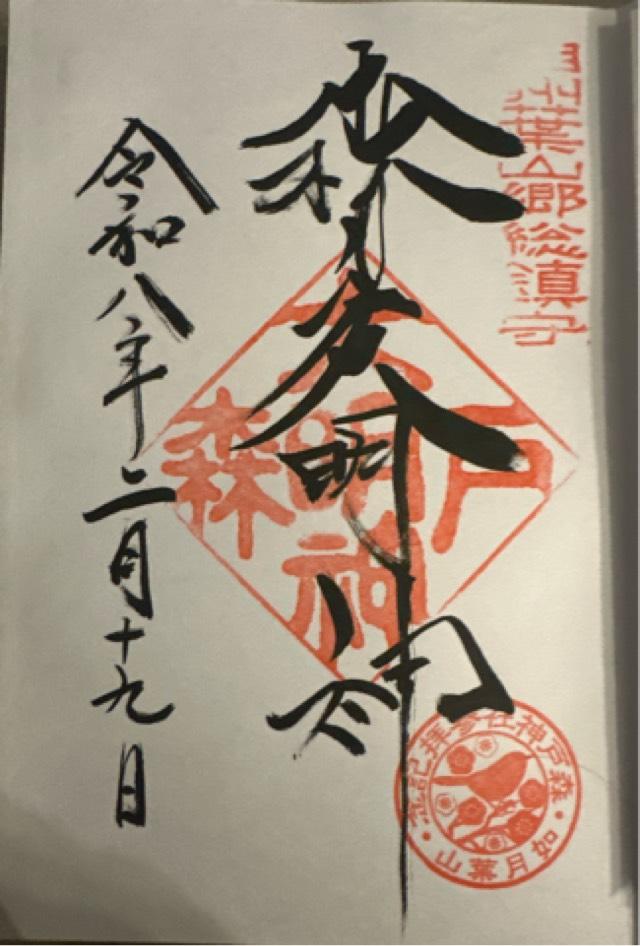 州葉山郷総鎮守
森戸大明神
森戸大明神
令和八年二月十九日
森戸神社参拝記念
如月葉山